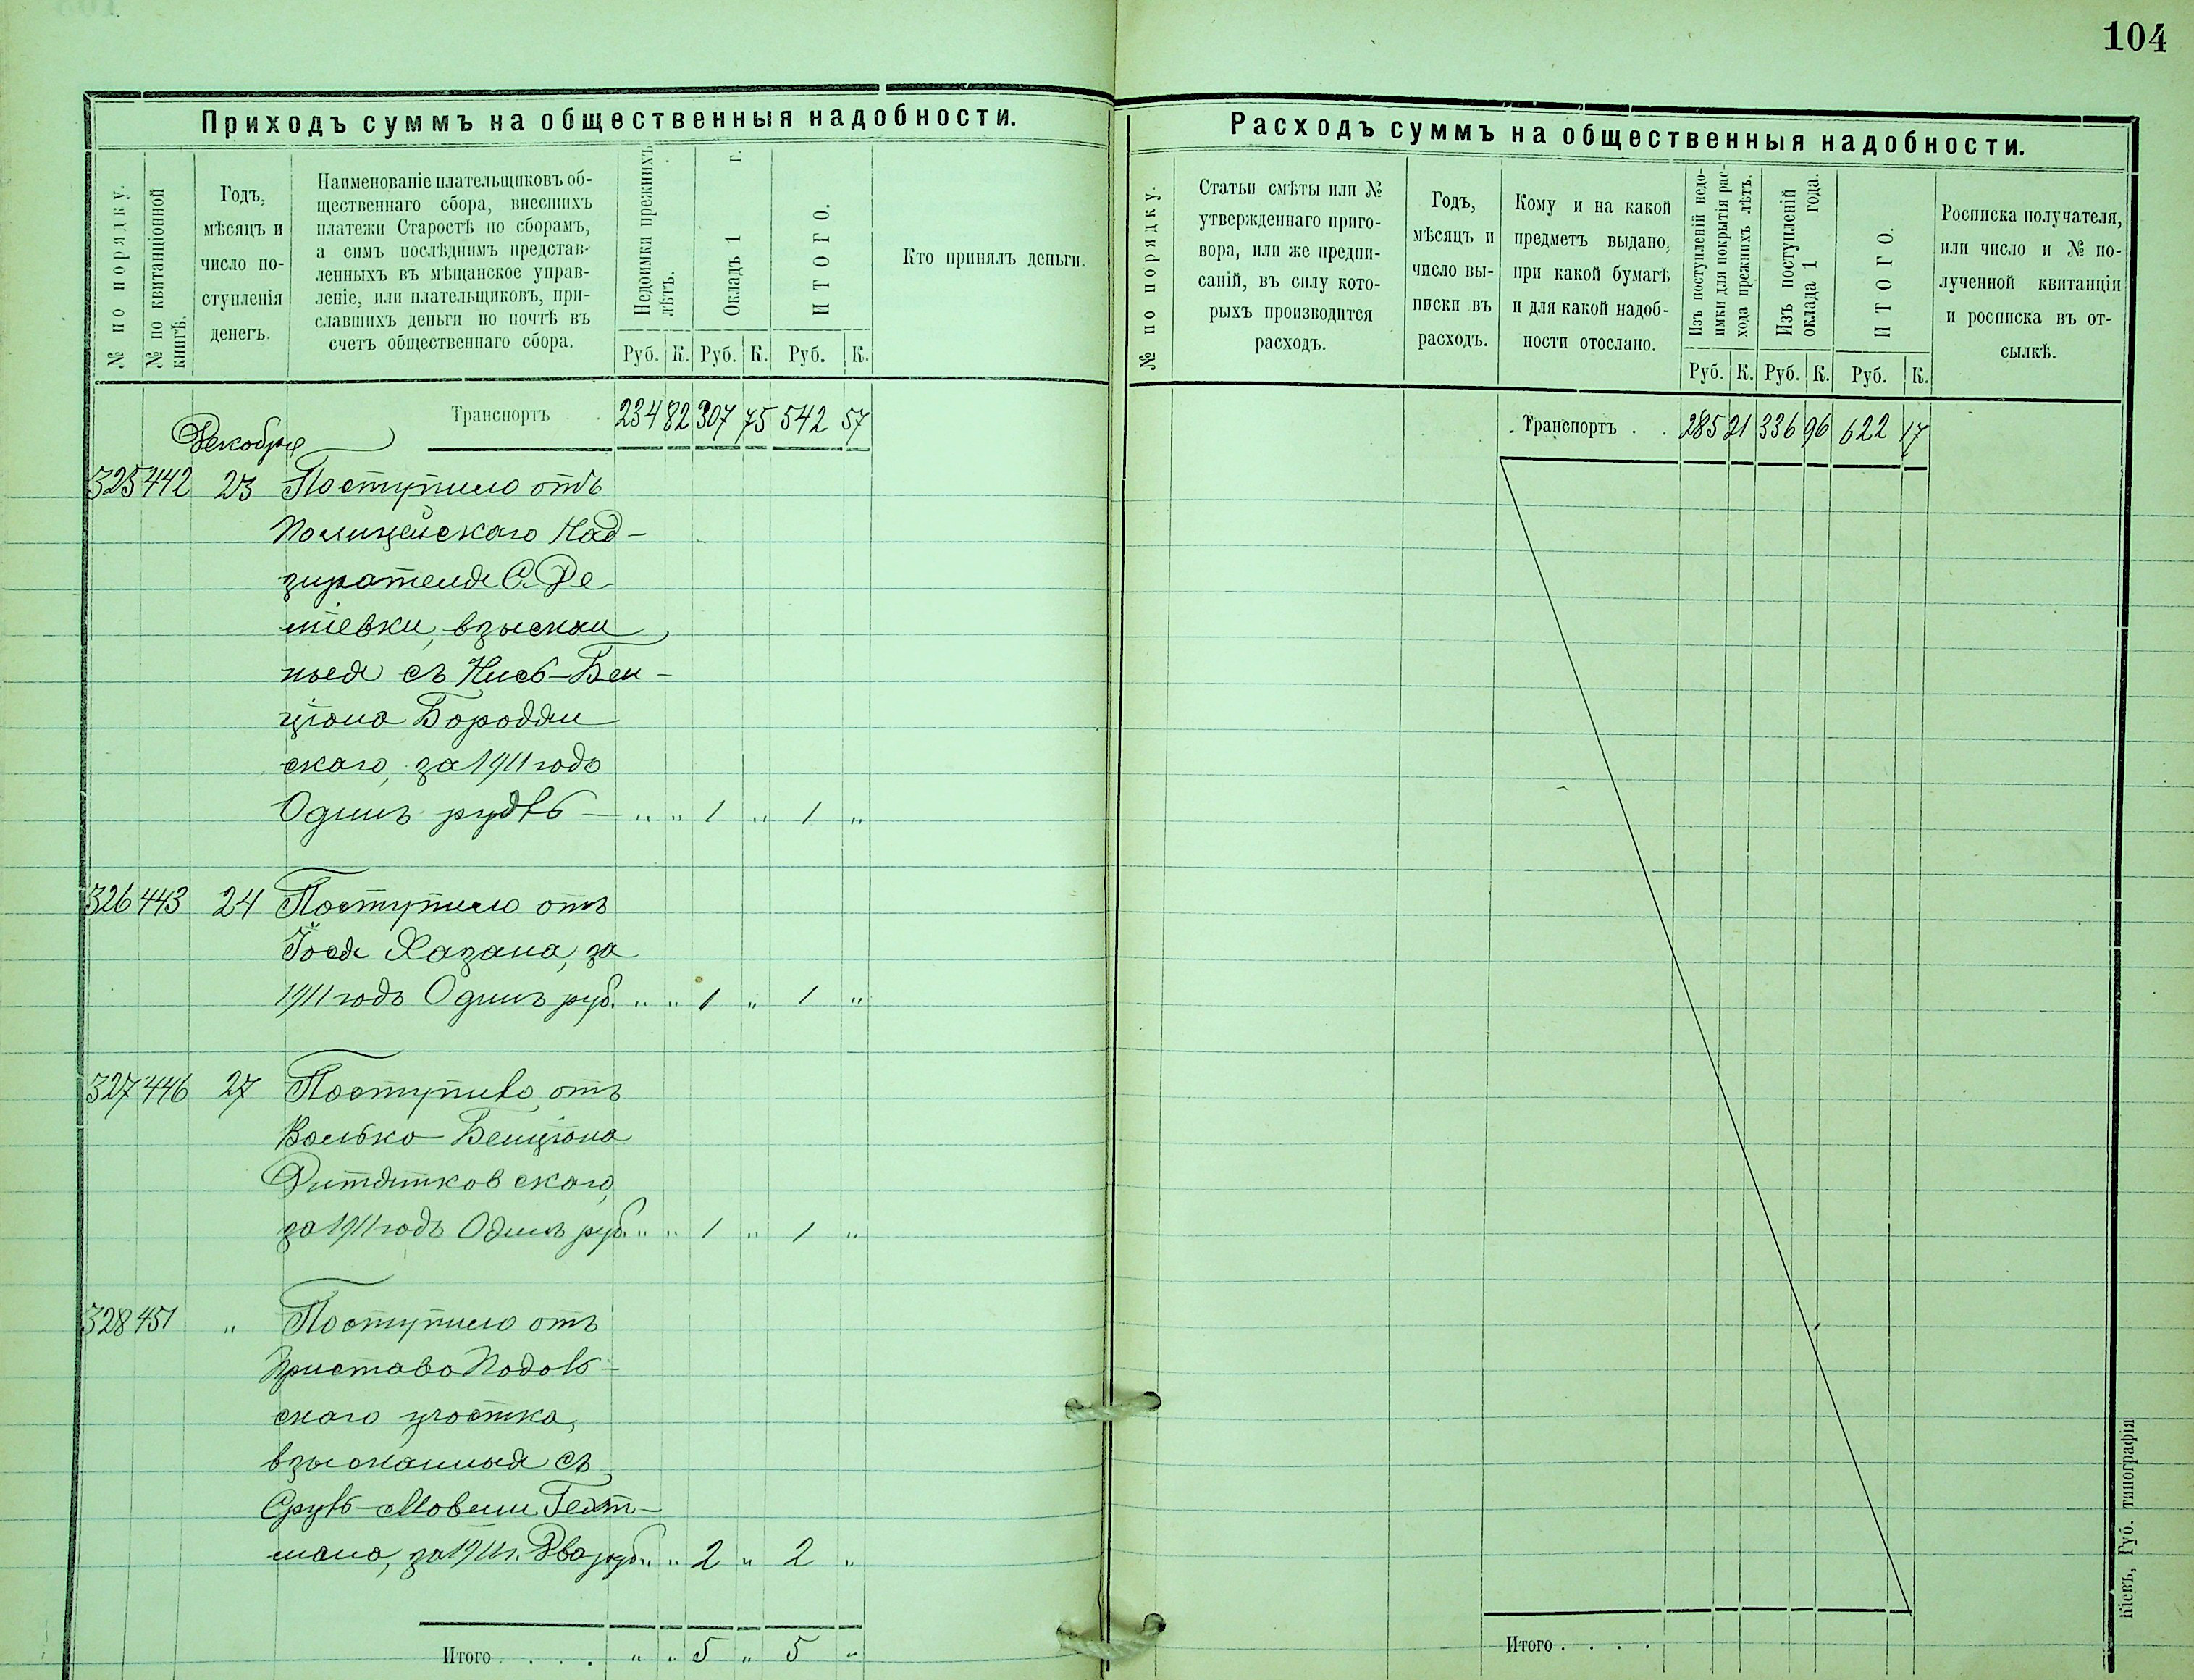 104
Приходъ суммъ на общественныя надобности.
№ по порядку.
№ по квитанціонной
книгѣ.
Годъ,
мѣсяцъ и
число по-
ступленія
денегъ.
Наименованіе плательщиковъ об-
щественнаго сбора, внесшихъ
платежи Старостѣ по сборамъ,
а симъ послѣднимъ представ-
ленныхъ въ мѣщанское управ-
леніе, или плательщиковъ, при-
славшихъ деньги по почтѣ въ
счетъ общественнаго сбора.
Недоимки прежнихъ
лѣтъ.
Окладъ 1 г.
ИТОГО.
Кто принялъ деньги.
Руб. К. Руб. К. Руб. К.
Транспортъ 234 82 307 75 542 57
Декабря
325 442 23 Поступило отъ
Полицейскаго Над-
зирателя С. Де
міевки, взыскан
ныя съ Бен-
ціона Бородян
скаго, за 1911 годъ
Одинъ рубль — " " 1 " 1 "
326 443 24 Поступило отъ
Хазана, за
1911 годъ Одинъ руб. " " 1 " 1 "
327 446 27 Поступило отъ
Волько-Бенціона
Дитятковскаго,
за 1911 годъ Одинъ руб. " " 1 " 1 "
328 451 " Поступило отъ
Пристава Подоль-
скаго участка,
взысканныя съ
Сруль-Мовши Гехт-
мана, за 1911 г. Два руб. " " 2 " 2 "
Итого . . . . " " 5 " 5 "
Расходъ суммъ на общественныя надобности.
№ по порядку.
Статьи смѣты или №
утвержденнаго приго-
вора, или же предпи-
саній, въ силу кото-
рыхъ производится
расходъ.
Годъ,
мѣсяцъ и
число вы-
писки въ
расходъ.
Кому и на какой
предметъ выдано,
при какой бумагѣ
и для какой надоб-
ности отослано.
Изъ поступленій недо-
имки для покрытія рас-
хода прежнихъ лѣтъ.
Изъ поступленій
оклада 1 года.
ИТОГО.
Росписка получателя,
или число и № по-
лученной квитанціи
и росписка въ от-
сылкѣ.
Руб. К. Руб. К. Руб. К.
Транспортъ . . 285 21 336 96 622 17
Итого . . . .
Кіевъ, Губ. типографія